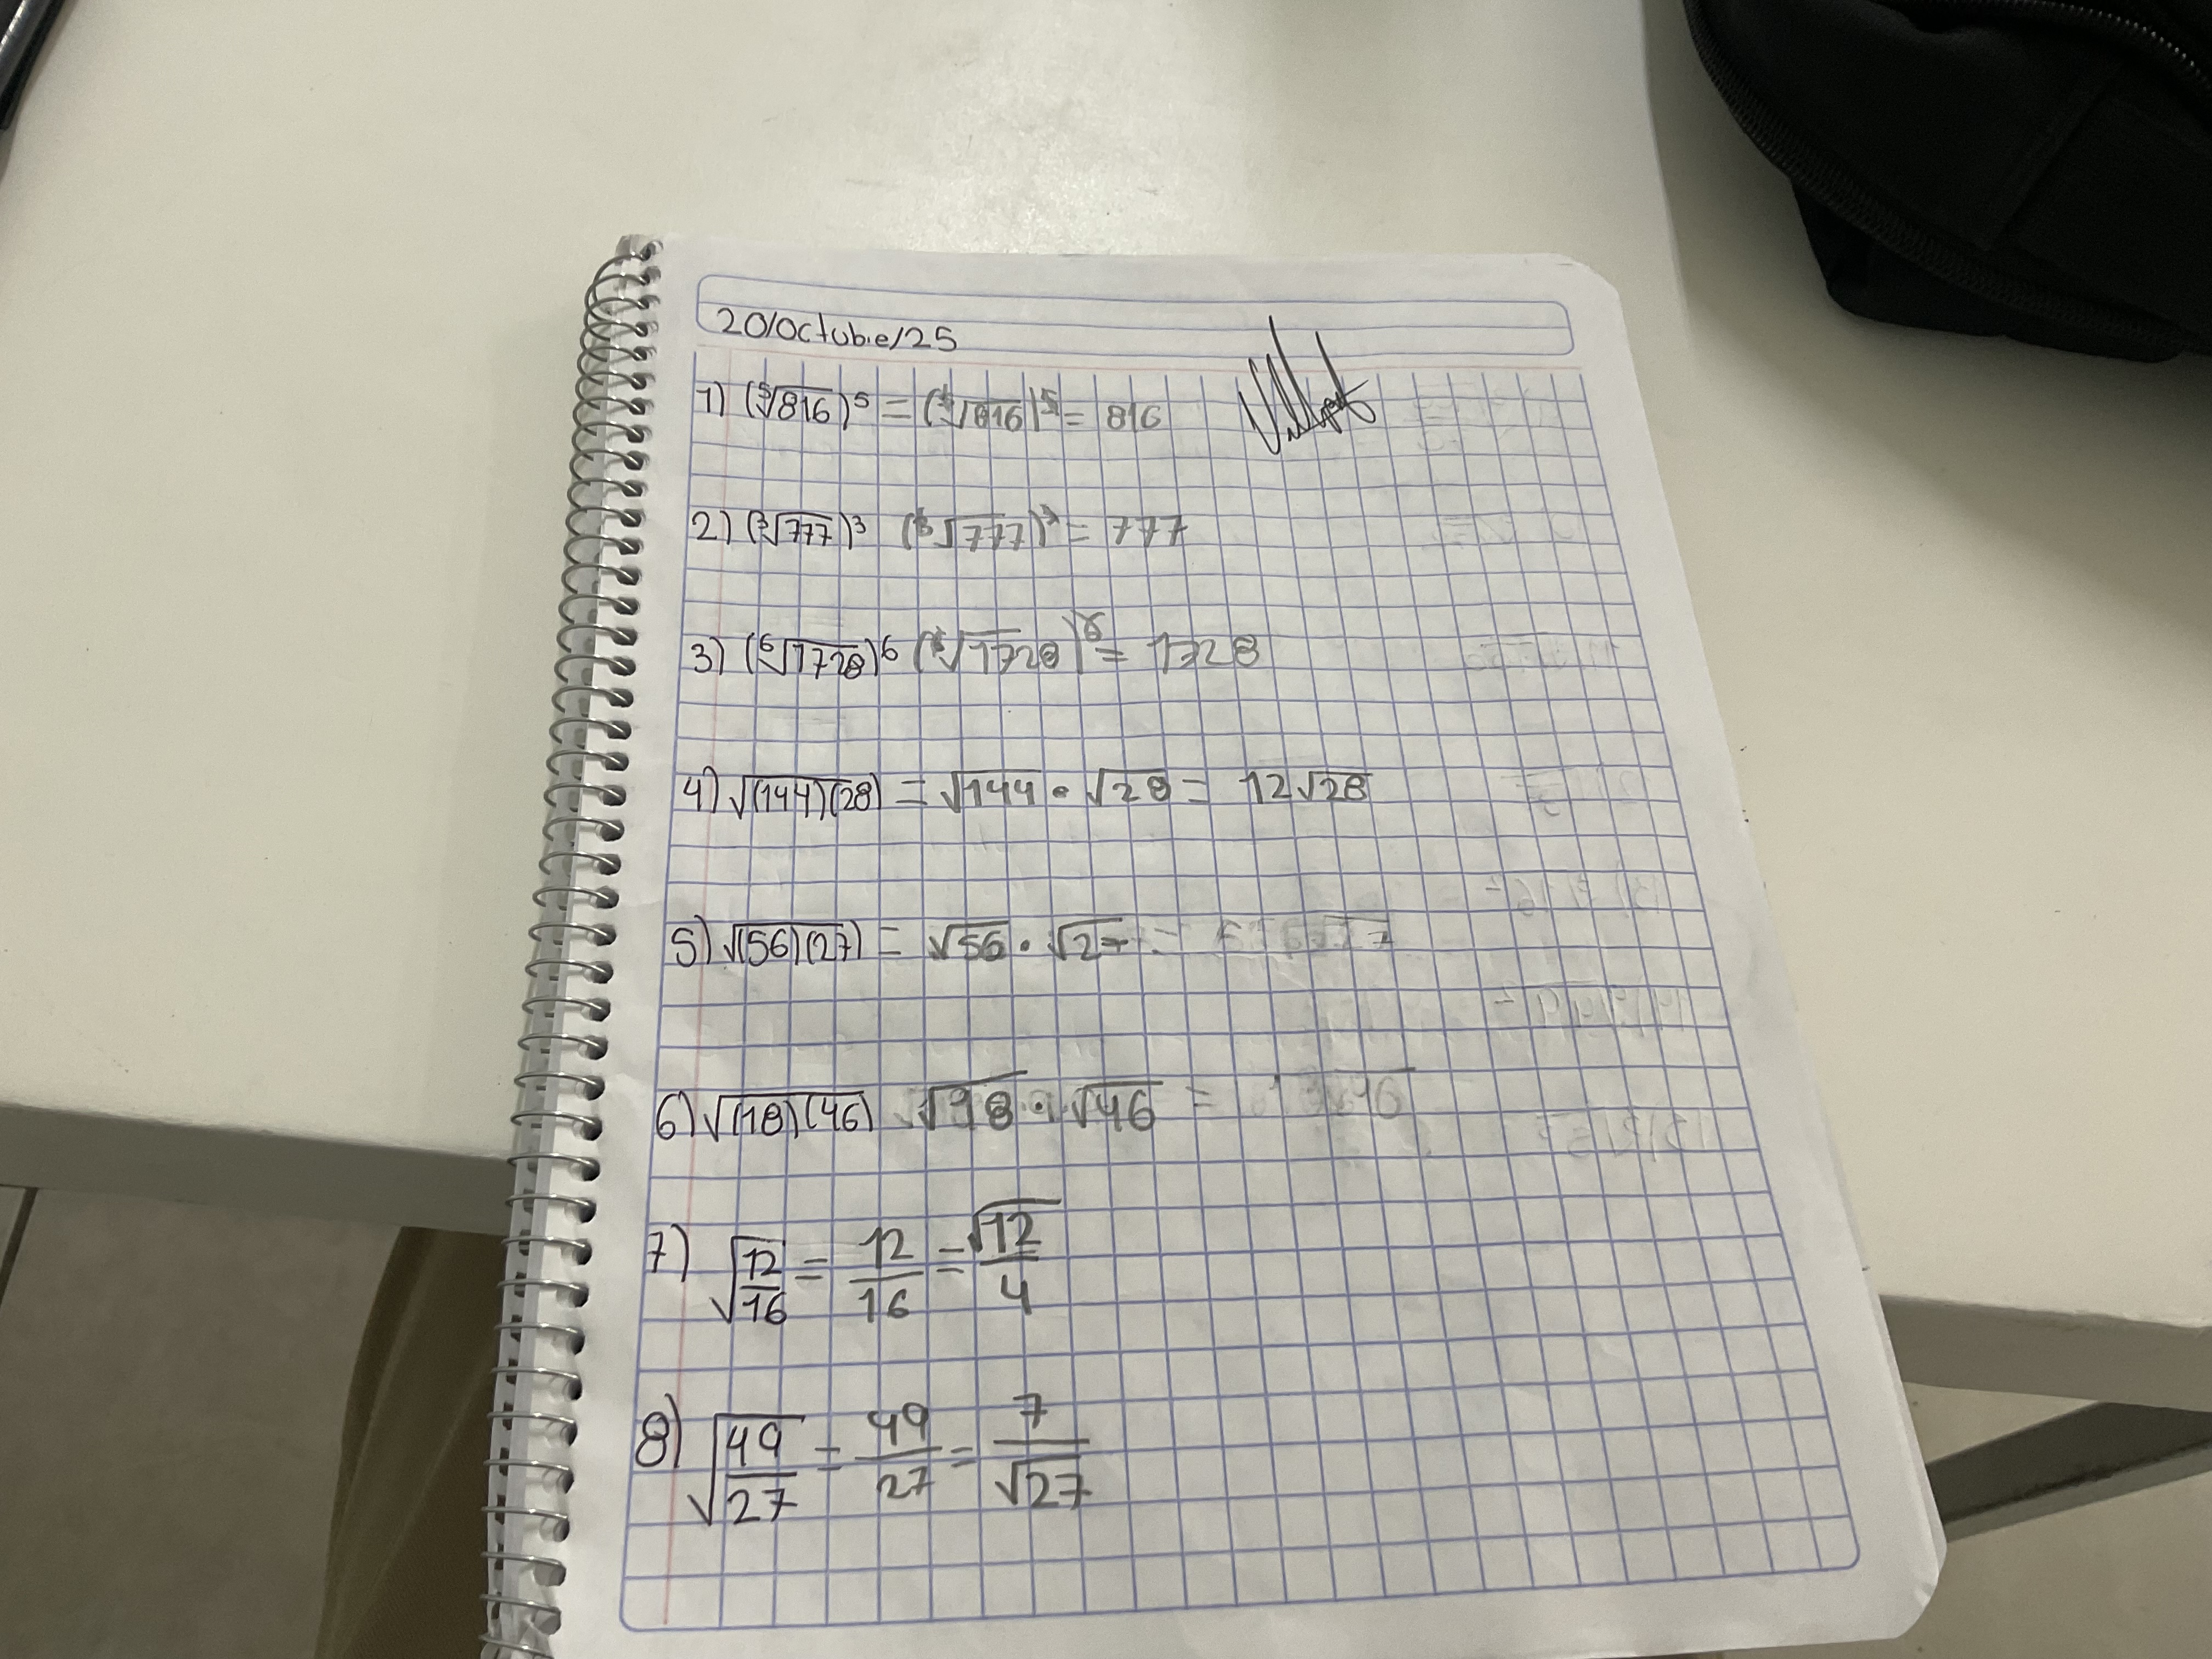 20/Octubre/25
1) (⁵√816)⁵ = (⁵√816)⁵ = 816
2) (³√777)³ (³√777)³ = 777
3) (⁶√1728)⁶ (⁶√1728)⁶ = 1728
4) √(144)(28) = √144 • √28 = 12√28
5) √(56)(27) = √56 • √27 =
6) √(18)(46) √18 • √46 =
7) √12/16 = 12/16 = √12/4
8) √49/27 = 49/27 = 7/√27